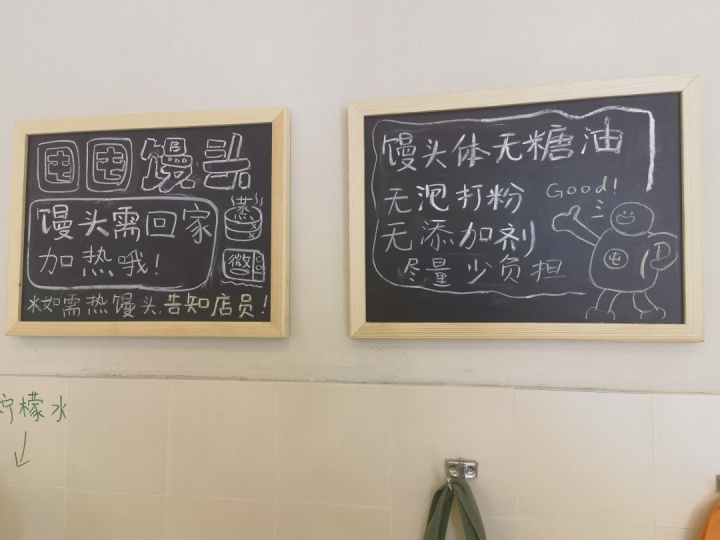 囤囤馒头
馒头需回家
加热哦!
蒸
微
*如需热馒头,告知店员!
馒头体无糖油
无泡打粉
无添加剂
尽量少负担
Good!
屯
柠檬水